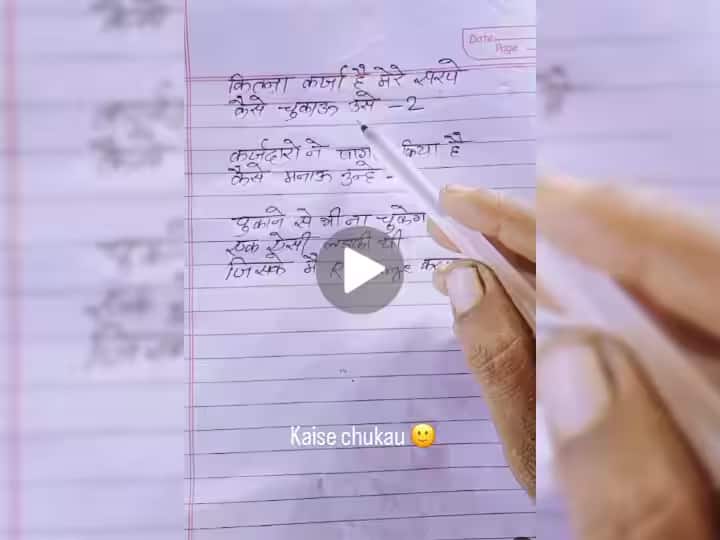 Date
Page
कितना कर्जा है मेरे सरपे
कैसे चुकाऊ उसे -2
कर्जदारो ने पागल किया है
कैसे मनाऊ उन्हे -
चुकाने से भी ना चुकेगा
एक ऐसी लडकी थी
जिसके मै
Kaise chukau 🙂